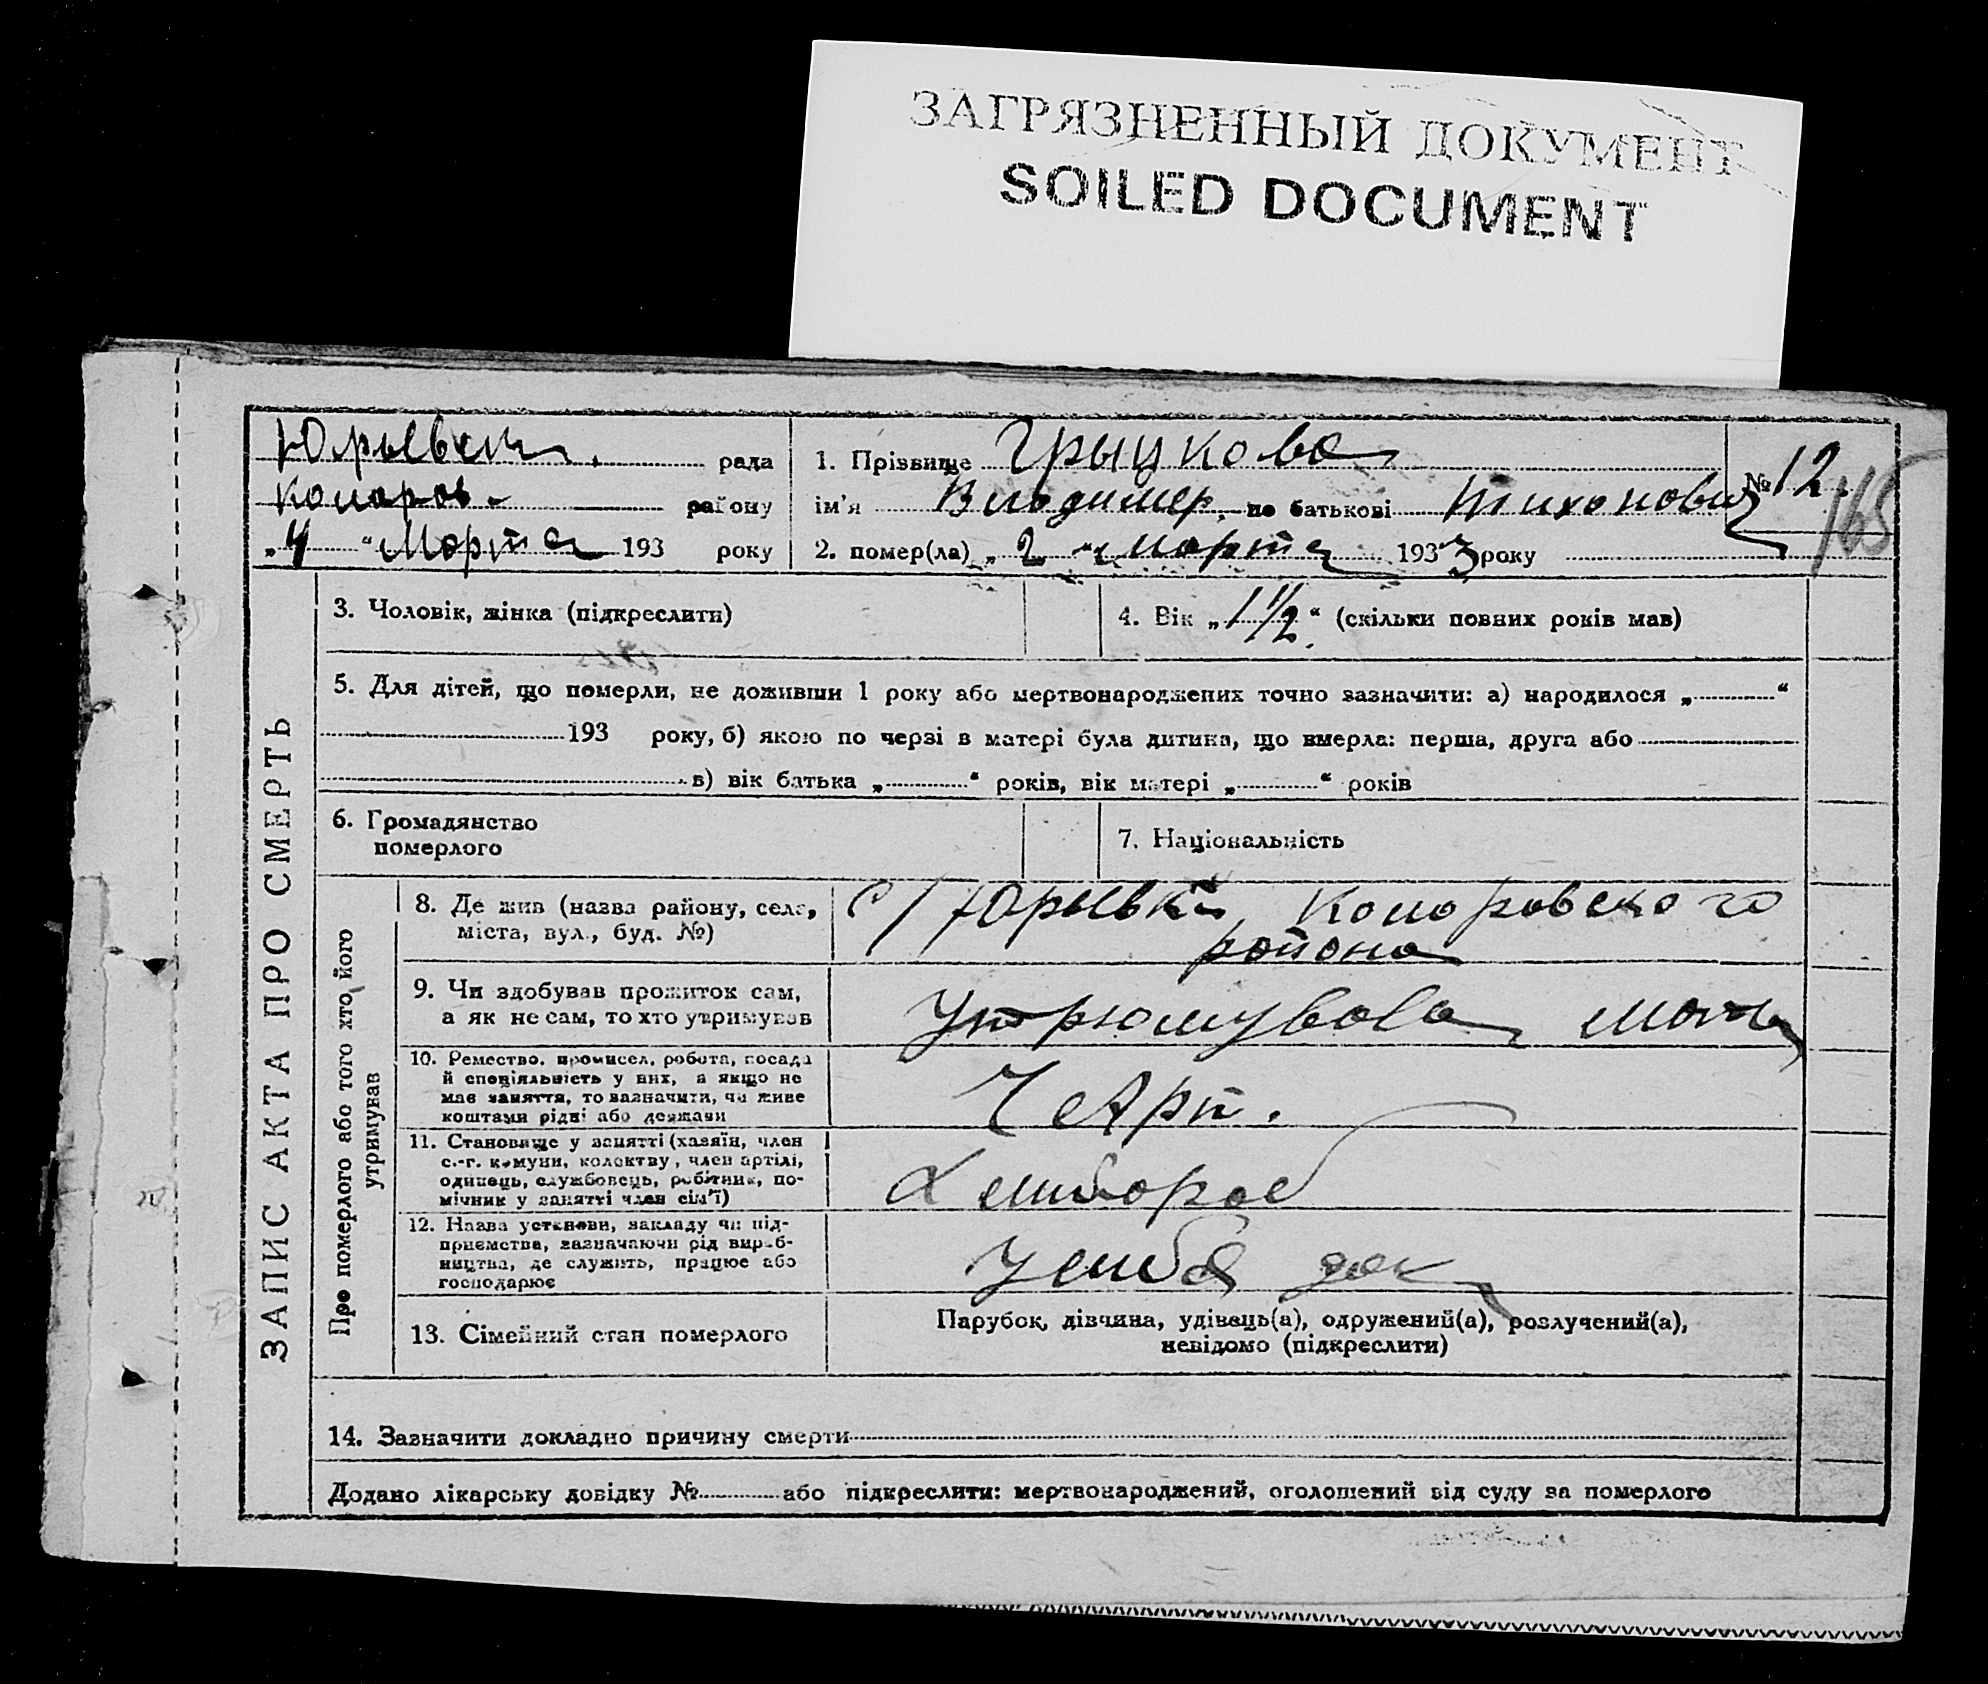 ЗАГРЯЗНЕННЫЙ ДОКУМЕНТ
SOILED DOCUMENT
рада
району
„4“ Марта 193 року
1. Прізвище Грыцкова
ім'я Владимер, по батькові Тихонович
2. помер(ла) „2“ Марта 1933 року
№ 12.
165
ЗАПИС АКТА ПРО СМЕРТЬ
3. Чоловік, жінка (підкреслити)
4. Вік „1 1/2“ (скільки повних років мав)
5. Для дітей, що померли, не доживши 1 року або мертвонароджених точно зазначити: а) народилося „ “
193 року, б) якою по черзі в матері була дитина, що вмерла: перша, друга або
в) вік батька „ “ років, вік матері „ “ років
6. Громадянство
померлого
7. Національність
Про померлого або того хто його
утримував
8. Де жив (назва району, села,
міста, вул., буд. №)
с/ Юрьевка, Комаровского
района
9. Чи здобував прожиток сам,
а як не сам, то хто утримував
10. Ремество, промисел, робота, посада
й спеціяльність у них, а якщо не
має заняття, то зазначити, чи живе
коштами рідні або держави
11. Становище у занятті (хазяїн, член
с.-г. комуни, колективу, член артілі,
одинець, службовець, робітник, по-
мічник у занятті член сім'ї)
12. Назва установи, закладу чи під-
приємства, зазначаючи рід вироб-
ництва, де служить, працює або
господарює
13. Сімейний стан померлого
Парубок, дівчина, удівець(а), одружений(а), розлучений(а),
невідомо (підкреслити)
14. Зазначити докладно причину смерти
Додано лікарську довідку № або підкреслити: мертвонароджений, оголошений від суду за померлого